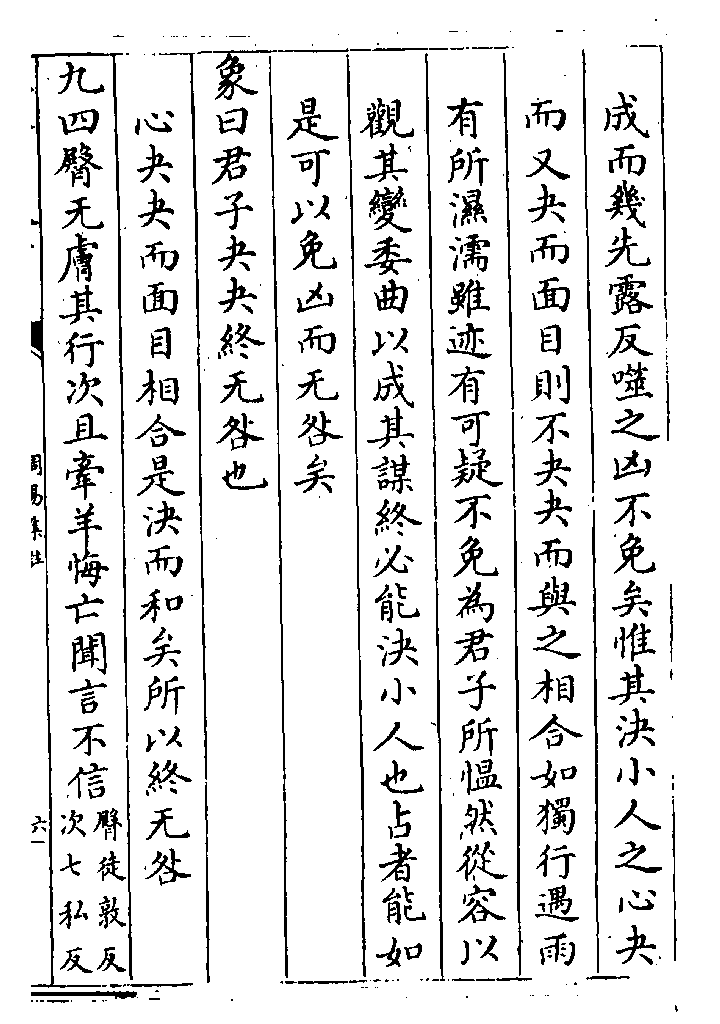 成而幾先露反噬之凶不免矣惟其決小人之心夬
而又夬而面目則不夬夬而與之相合如獨行遇雨
有所濕濡雖迹有可疑不免為君子所愠然從容以
觀其變委曲以成其謀終必能決小人也占者能如
是可以免凶而无咎矣
象曰君子夬夬終无咎也
心夬夬而面目相合是決而和矣所以終无咎
九四臀无膚其行次且牽羊悔亡聞言不信
臀徒敦反
次七私反
周易集註
六一